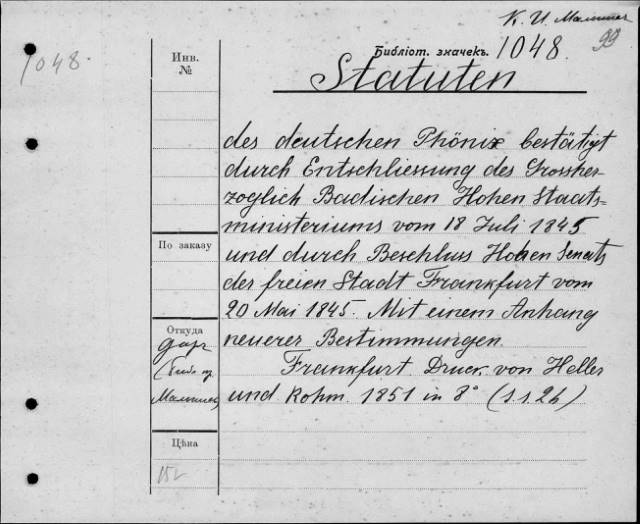 К. И.
99
1048.
Инв.
№
Библіот. значекъ. 1048.
Statuten
des deutschen Phönix bestätigt
durch Entschliessung des Grossher-
zoglich Badischen Hohen Staats-
ministeriums vom 18 Juli 1845
По заказу
und durch Beschluss Hohen Senats
der freien Stadt Frankfurt vom
20 Mai 1845. Mit einem Anhang
Откуда
дар
neuerer Bestimmungen.
Frankfurt. Druck. von Heller
und Rohm. 1851 in 8° (
Цѣна